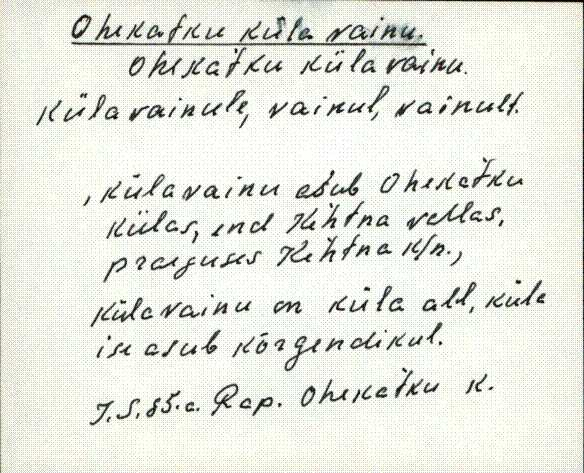 Ohekatku küla vainu.
Ohekatku küla vainu.
Külavainule, vainul, vainult.
, külavainu asub Ohekatku
külas, end Kehtna vallas,
praeguses Kehtna k/n.,
Külavainu on küla all, küla
ise asub kõrgendikul.
J.S. 85.a. Rap. Ohekatku k.